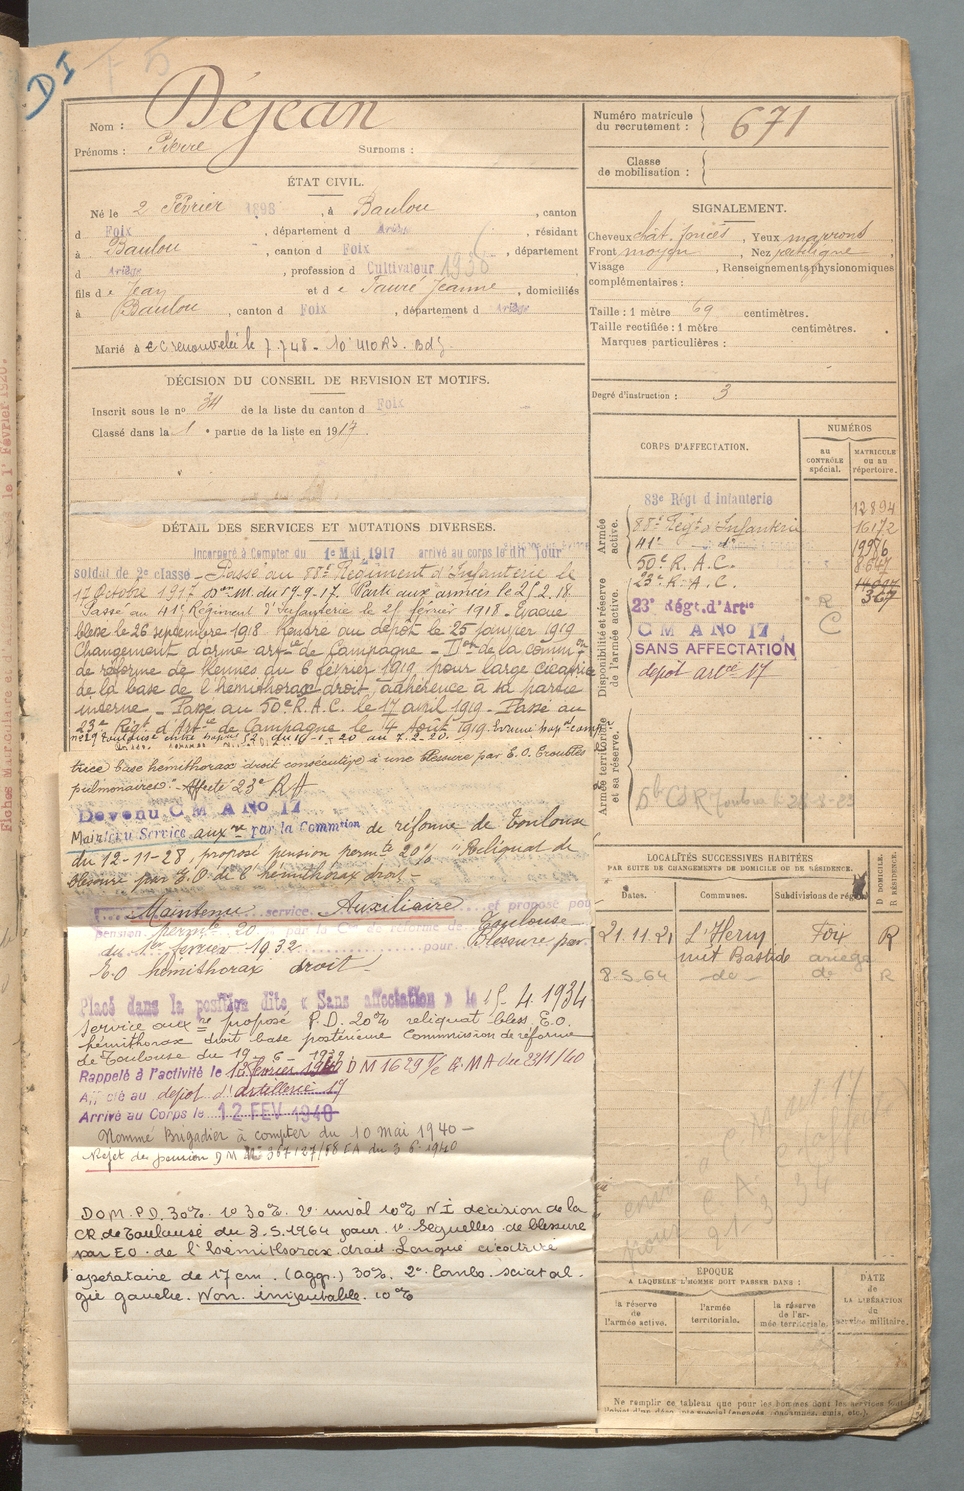 DI
Nom : Déjean
Prénoms : Pierre Surnoms :
Numéro matricule du recrutement : 671
Classe de mobilisation :
ÉTAT CIVIL.
Né le 2 Février 1898, à Baulou, canton
d Foix, département d Ariège, résidant
à Baulou, canton d Foix, département
d Ariège, profession d Cultivateur 1936
fils de Jean et de Fauré Jeanne, domiciliés
à Baulou, canton d Foix, département d Ariège
Marié à CC renouvelée le 7.7.48 - 10'410 RS. Bdg.
SIGNALEMENT.
Cheveux chât. foncés, Yeux marrons
Front moyen, Nez rectiligne
Visage , Renseignements physionomiques
complémentaires :
Taille : 1 mètre 69 centimètres.
Taille rectifiée : 1 mètre centimètres.
Marques particulières :
Degré d'instruction : 3
DÉCISION DU CONSEIL DE REVISION ET MOTIFS.
Inscrit sous le no 34 de la liste du canton d Foix
Classé dans la 1e partie de la liste en 1917.
DÉTAIL DES SERVICES ET MUTATIONS DIVERSES.
Incorporé à Compter du 1er Mai 1917 arrivé au corps le dit jour
soldat de 2e classe - Passé au 88e Régiment d'Infanterie le
17 Octobre 1917 Don M. du 19-9-17. Parti aux armées le 21.2.18.
Passé au 41e Régiment d'Infanterie le 21 février 1918 - Evacué
blessé le 26 septembre 1918 Rentré au dépôt le 25 janvier 1919
Changement d'arme artie de Campagne - Don de la common
de réforme de Rennes du 6 février 1919 pour large cicatrice
de la base de l'hémithorax droit, adhérence à sa partie
interne - Passé au 50e R.A.C. le 17 avril 1919 - Passé au
23e Régt d'Artie de Campagne le 4 Août 1919.
trice base hémithorax droit consécutive à une blessure par E.O. Troubles
pulmonaires". Affecté 23e RA
Devenu C M A No 17
Maintenu Service auxre par la Commtion de réforme de Toulouse
du 12-11-28, proposé pension permte 20% "Reliquat de
blessure par E.O. de l'hémithorax droit -
Maintenu service Auxiliaire et proposé pou
pension permte 20 par la Con de réforme de Toulouse
du 1er février 1932 pour Blessure par
E.O hémithorax droit
Placé dans la position dite « Sans affectation » le 15-4.1934
Service auxre proposé P.D. 20% reliquat bless E.O.
hémithorax droit base postérieure Commission de réforme
de Toulouse du 19-6-1939
Rappelé à l'activité le 12 février 1940 DM 1629 1/2 G.MA du 23/1/40
Affecté au dépot d'artillerie 17
Arrivé au Corps le 12 FEV 1940
Nommé Brigadier à compter du 10 mai 1940 -
Rejet de pension DM No 367127/58 CA du 3 6 1940
DOM. P.D. 30%. 1o 30%. 2o inval 10% NI décision de la
CR de Toulouse du 8.5.1964 pour 1o Séquelles de blessure
par EO. de l'hémithorax droit. Longue cicatrice
opératoire de 17 cm. (agg.) 30%. 2o Lombo. sciatal.
gie gauche. Non imputable. 10%
CORPS D'AFFECTATION.
NUMÉROS
AU CONTRÔLE spécial.
MATRICULE ou au répertoire.
Armée active.
83e Régt d'Infanterie 12894
88e Régt d'Infanterie 16172
41e d° 19976
50e R.A.C. 8647
Disponibilité et réserve de l'armée active.
23e R.A.C. 367
23e Régt. d'Artie R
C M A No 17 C
SANS AFFECTATION
dépot artie 17
Armée territoriale et sa réserve.
LOCALITÉS SUCCESSIVES HABITÉES
PAR SUITE DE CHANGEMENTS DE DOMICILE OU DE RÉSIDENCE.
Dates. Communes. Subdivisions de région. D DOMICILE. R RÉSIDENCE.
21.11.21 L'Herm Foix R
mét Bastide ariège
8.5.64 -de- de R
ÉPOQUE
A LAQUELLE L'HOMME DOIT PASSER DANS :
la réserve de l'armée active.
l'armée territoriale.
la réserve de l'armée territoriale.
DATE de LA LIBÉRATION du service militaire.
Ne remplir ce tableau que pour les hommes dont les services font